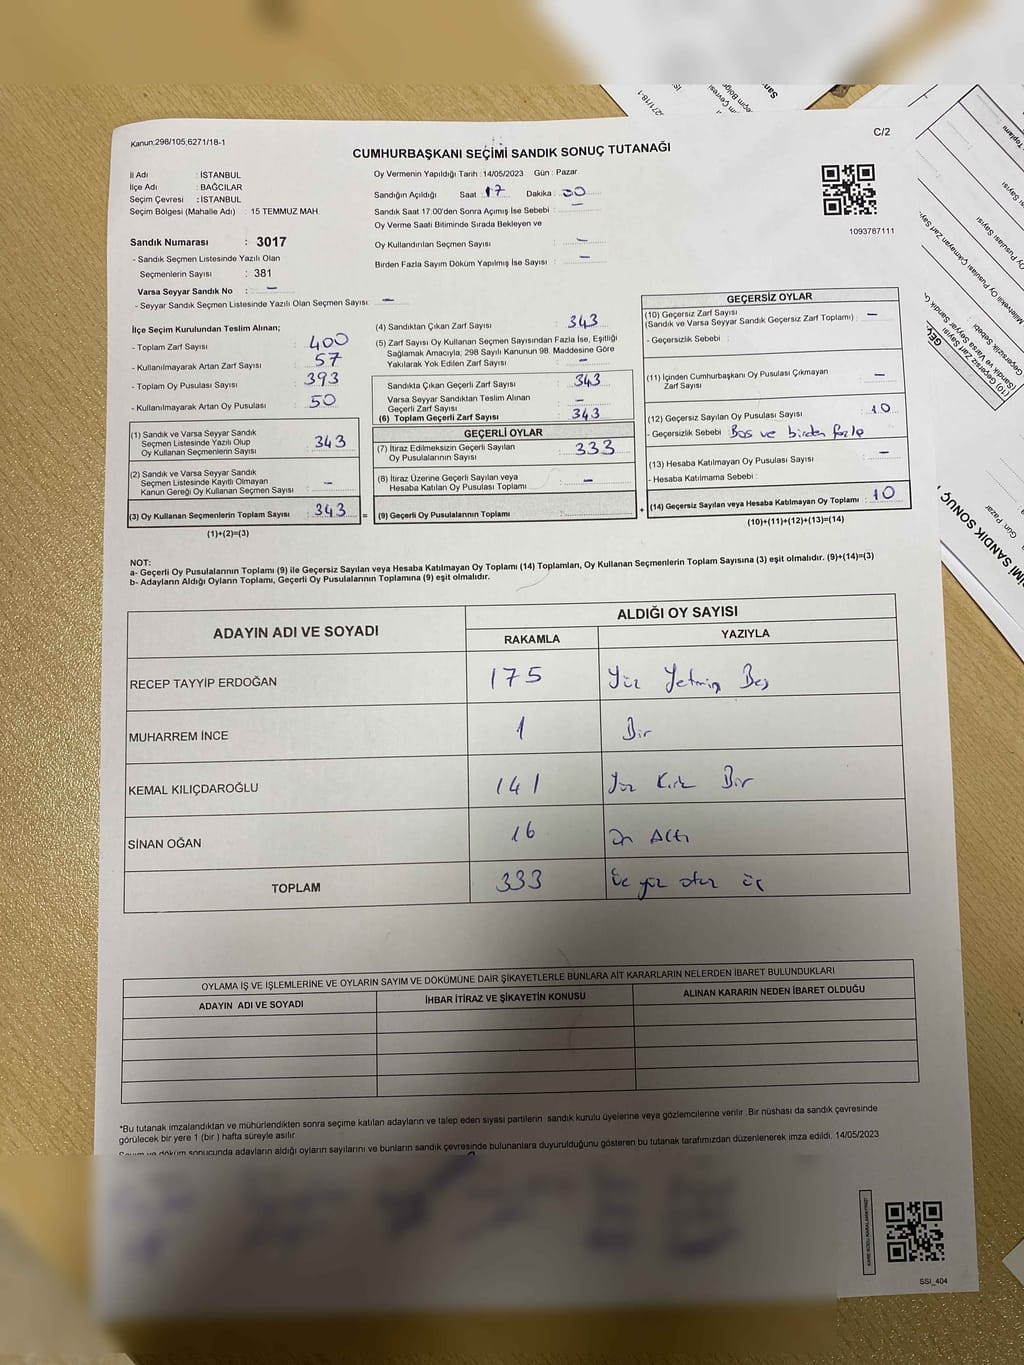 Kanun:298/105;6271/18-1
C/2
CUMHURBAŞKANI SEÇİMİ SANDIK SONUÇ TUTANAĞI
İl Adı : İSTANBUL
İlçe Adı : BAĞCILAR
Seçim Çevresi : İSTANBUL
Seçim Bölgesi (Mahalle Adı) : 15 TEMMUZ MAH.
Sandık Numarası : 3017
- Sandık Seçmen Listesinde Yazılı Olan
Seçmenlerin Sayısı : 381
Varsa Seyyar Sandık No : –
- Seyyar Sandık Seçmen Listesinde Yazılı Olan Seçmen Sayısı: –
Oy Vermenin Yapıldığı Tarih : 14/05/2023 Gün : Pazar
Sandığın Açıldığı Saat : 17 Dakika : 00
Sandık Saat 17:00'den Sonra Açılmış İse Sebebi : –
Oy Verme Saati Bitiminde Sırada Bekleyen ve
Oy Kullandırılan Seçmen Sayısı : –
Birden Fazla Sayım Döküm Yapılmış İse Sayısı : –
1093787111
İlçe Seçim Kurulundan Teslim Alınan;
- Toplam Zarf Sayısı : 400
- Kullanılmayarak Artan Zarf Sayısı : 57
- Toplam Oy Pusulası Sayısı : 393
- Kullanılmayarak Artan Oy Pusulası : 50
(1) Sandık ve Varsa Seyyar Sandık
Seçmen Listesinde Yazılı Olup
Oy Kullanan Seçmenlerin Sayısı : 343
(2) Sandık ve Varsa Seyyar Sandık
Seçmen Listesinde Kayıtlı Olmayan
Kanun Gereği Oy Kullanan Seçmen Sayısı : –
(3) Oy Kullanan Seçmenlerin Toplam Sayısı : 343 =
(1)+(2)=(3)
(4) Sandıktan Çıkan Zarf Sayısı : 343
(5) Zarf Sayısı Oy Kullanan Seçmen Sayısından Fazla İse, Eşitliği
Sağlamak Amacıyla, 298 Sayılı Kanunun 98. Maddesine Göre
Yakılarak Yok Edilen Zarf Sayısı : –
Sandıkta Çıkan Geçerli Zarf Sayısı : 343
Varsa Seyyar Sandıktan Teslim Alınan
Geçerli Zarf Sayısı : –
(6) Toplam Geçerli Zarf Sayısı : 343
GEÇERLİ OYLAR
(7) İtiraz Edilmeksizin Geçerli Sayılan
Oy Pusulalarının Sayısı : 333
(8) İtiraz Üzerine Geçerli Sayılan veya
Hesaba Katılan Oy Pusulası Toplamı : –
(9) Geçerli Oy Pusulalarının Toplamı : +
GEÇERSİZ OYLAR
(10) Geçersiz Zarf Sayısı
(Sandık ve Varsa Seyyar Sandık Geçersiz Zarf Toplamı) : –
- Geçersizlik Sebebi :
(11) İçinden Cumhurbaşkanı Oy Pusulası Çıkmayan
Zarf Sayısı : –
(12) Geçersiz Sayılan Oy Pusulası Sayısı : 10
- Geçersizlik Sebebi : Boş ve birden fazla
(13) Hesaba Katılmayan Oy Pusulası Sayısı : –
- Hesaba Katılmama Sebebi :
(14) Geçersiz Sayılan veya Hesaba Katılmayan Oy Toplamı : 10
(10)+(11)+(12)+(13)=(14)
NOT:
a- Geçerli Oy Pusulalarının Toplamı (9) ile Geçersiz Sayılan veya Hesaba Katılmayan Oy Toplamı (14) Toplamları, Oy Kullanan Seçmenlerin Toplam Sayısına (3) eşit olmalıdır. (9)+(14)=(3)
b- Adayların Aldığı Oyların Toplamı, Geçerli Oy Pusulalarının Toplamına (9) eşit olmalıdır.
ADAYIN ADI VE SOYADI
ALDIĞI OY SAYISI
RAKAMLA YAZIYLA
RECEP TAYYİP ERDOĞAN 175 Yüz Yetmiş Beş
MUHARREM İNCE 1 Bir
KEMAL KILIÇDAROĞLU 141 Yüz Kırk Bir
SİNAN OĞAN 16 On Altı
TOPLAM 333 Üç yüz otuz üç
OYLAMA İŞ VE İŞLEMLERİNE VE OYLARIN SAYIM VE DÖKÜMÜNE DAİR ŞİKAYETLERLE BUNLARA AİT KARARLARIN NELERDEN İBARET BULUNDUKLARI
ADAYIN ADI VE SOYADI İHBAR İTİRAZ VE ŞİKAYETİN KONUSU ALINAN KARARIN NEDEN İBARET OLDUĞU
*Bu tutanak imzalandıktan ve mühürlendikten sonra seçime katılan adayların ve talep eden siyasi partilerin sandık kurulu üyelerine veya gözlemcilerine verilir. Bir nüshası da sandık çevresinde
görülecek bir yere 1 (bir ) hafta süreyle asılır.
Sayım ve döküm sonucunda adayların aldığı oyların sayılarını ve bunların sandık çevresinde bulunanlara duyurulduğunu gösteren bu tutanak tarafımızdan düzenlenerek imza edildi. 14/05/2023
SSİ_404